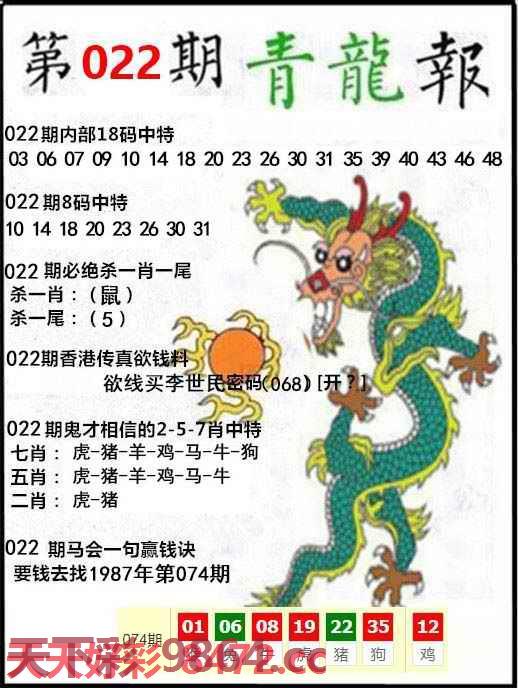 第022期青龍報
022期内部18码中特
03 06 07 09 10 14 18 20 23 26 30 31 35 39 40 43 46 48
022期8码中特
10 14 18 20 23 26 30 31
022 期必绝杀一肖一尾
杀一肖：（鼠）
杀一尾：（5）
022期香港传真欲钱料
欲线买李世民密码(068) [开？]
022期鬼才相信的2-5-7肖中特
七肖：虎-猪-羊-鸡-马-牛-狗
五肖：虎-猪-羊-鸡-马-牛
二肖：虎-猪
022 期马会一句赢钱诀
要钱去找1987年第074期
074期 01 06 08 19 22 35 12
兔 牛 虎 猪 狗 鸡